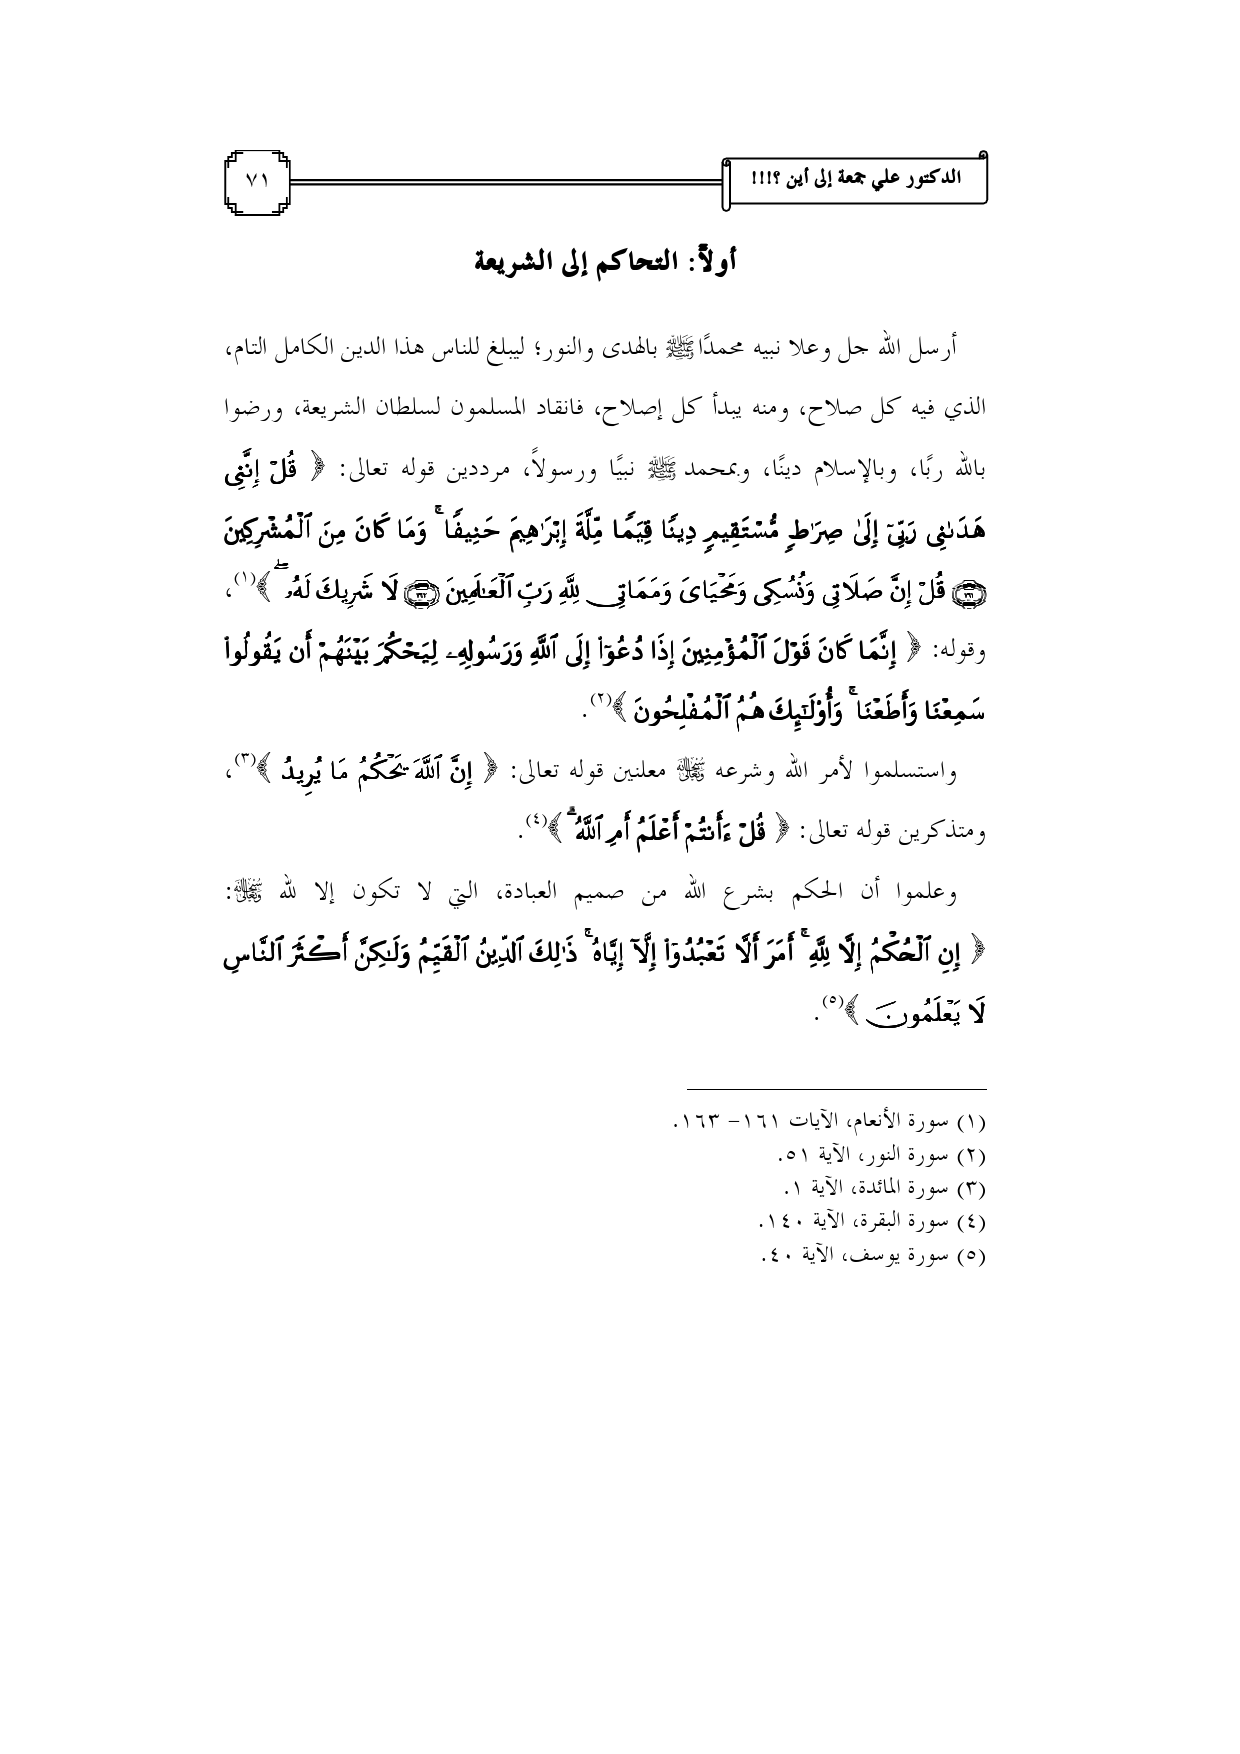 الدكتور علي جمعة إلى أين ؟!!!
٧١
أولاً: التحاكم إلى الشريعة
أرسل الله جل وعلا نبيه محمدًا ﷺ بالهدى والنور؛ ليبلغ للناس هذا الدين الكامل التام،
الذي فيه كل صلاح، ومنه يبدأ كل إصلاح، فانقاد المسلمون لسلطان الشريعة، ورضوا
بالله ربًا، وبالإسلام دينًا، وبمحمد ﷺ نبيًا ورسولاً، مرددين قوله تعالى: ﴿ قُلْ إِنَّنِى
هَدَىٰنِى رَبِّىٓ إِلَىٰ صِرَٰطٍ مُّسْتَقِيمٍ دِينًا قِيَمًا مِّلَّةَ إِبْرَٰهِيمَ حَنِيفًا ۚ وَمَا كَانَ مِنَ ٱلْمُشْرِكِينَ
﴿١٦١﴾ قُلْ إِنَّ صَلَاتِى وَنُسُكِى وَمَحْيَاىَ وَمَمَاتِى لِلَّهِ رَبِّ ٱلْعَـٰلَمِينَ ﴿١٦٢﴾ لَا شَرِيكَ لَهُۥ ۖ ﴾(١)،
وقوله: ﴿ إِنَّمَا كَانَ قَوْلَ ٱلْمُؤْمِنِينَ إِذَا دُعُوٓا۟ إِلَى ٱللَّهِ وَرَسُولِهِۦ لِيَحْكُمَ بَيْنَهُمْ أَن يَقُولُوا۟
سَمِعْنَا وَأَطَعْنَا ۚ وَأُو۟لَـٰٓئِكَ هُمُ ٱلْمُفْلِحُونَ ﴾(٢).
واستسلموا لأمر الله وشرعه ﷻ معلنين قوله تعالى: ﴿ إِنَّ ٱللَّهَ يَحْكُمُ مَا يُرِيدُ ﴾(٣)،
ومتذكرين قوله تعالى: ﴿ قُلْ ءَأَنتُمْ أَعْلَمُ أَمِ ٱللَّهُ ۗ ﴾(٤).
وعلموا أن الحكم بشرع الله من صميم العبادة، التي لا تكون إلا لله ﷻ:
﴿ إِنِ ٱلْحُكْمُ إِلَّا لِلَّهِ ۚ أَمَرَ أَلَّا تَعْبُدُوٓا۟ إِلَّآ إِيَّاهُ ۚ ذَٰلِكَ ٱلدِّينُ ٱلْقَيِّمُ وَلَـٰكِنَّ أَكْثَرَ ٱلنَّاسِ
لَا يَعْلَمُونَ ﴾(٥).
(١) سورة الأنعام، الآيات ١٦١– ١٦٣.
(٢) سورة النور، الآية ٥١.
(٣) سورة المائدة، الآية ١.
(٤) سورة البقرة، الآية ١٤٠.
(٥) سورة يوسف، الآية ٤٠.